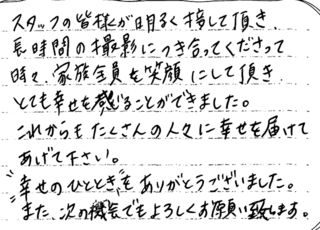 スタッフの皆様が明るく接して頂き、
長時間の撮影につき合ってくださって
時々、家族全員を笑顔にして頂き、
とても幸せを感じることができました。
これからもたくさんの人々に幸せを届けて
あげて下さい。
"幸せのひととき"をありがとうございました。
また、次の機会でもよろしくお願い致します。